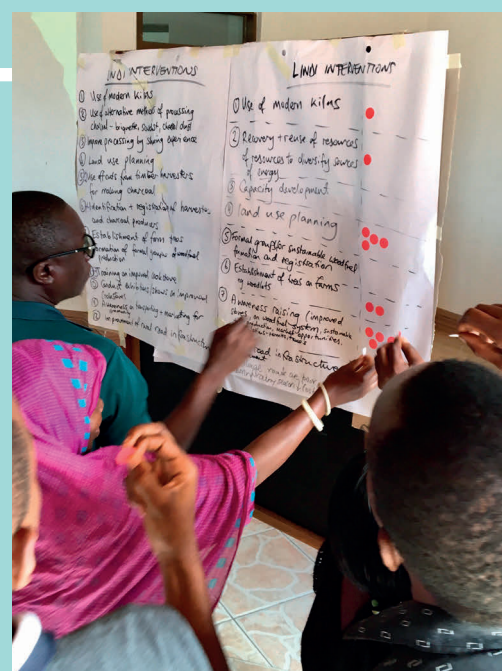 LINDI INTERVENTIONS
① Use of modern kilns
② Use of alternative method of processing
charcoal - briquette, sawdust, charcoal dust
③ Improve processing by sharing experience
④ Land use planning
⑤ Use offcuts from timber harvesters
for making charcoal
Identification + registration of harvesters
and charcoal producers
Establishment of farm trees
Formation of formal groups of woodfuel
production
Training on improved cookstove
Conduct exhibitions/shows on improved
cookstoves
Awareness on harvesting + marketing for
improvement of rural road infrastructure
LINDI INTERVENTIONS
① Use of modern kilns
② Recovery + reuse of resources
of resources to diversify sources
of energy
③ Capacity development
④ land use planning
⑤ Formal groups for sustainable woodfuel
formation and registration
⑥ Establishment of trees on farms
woodlots
⑦ Awareness raising (improved
stoves, on woodfuel system, sustainable
production, market opportunities,
road infrastructure